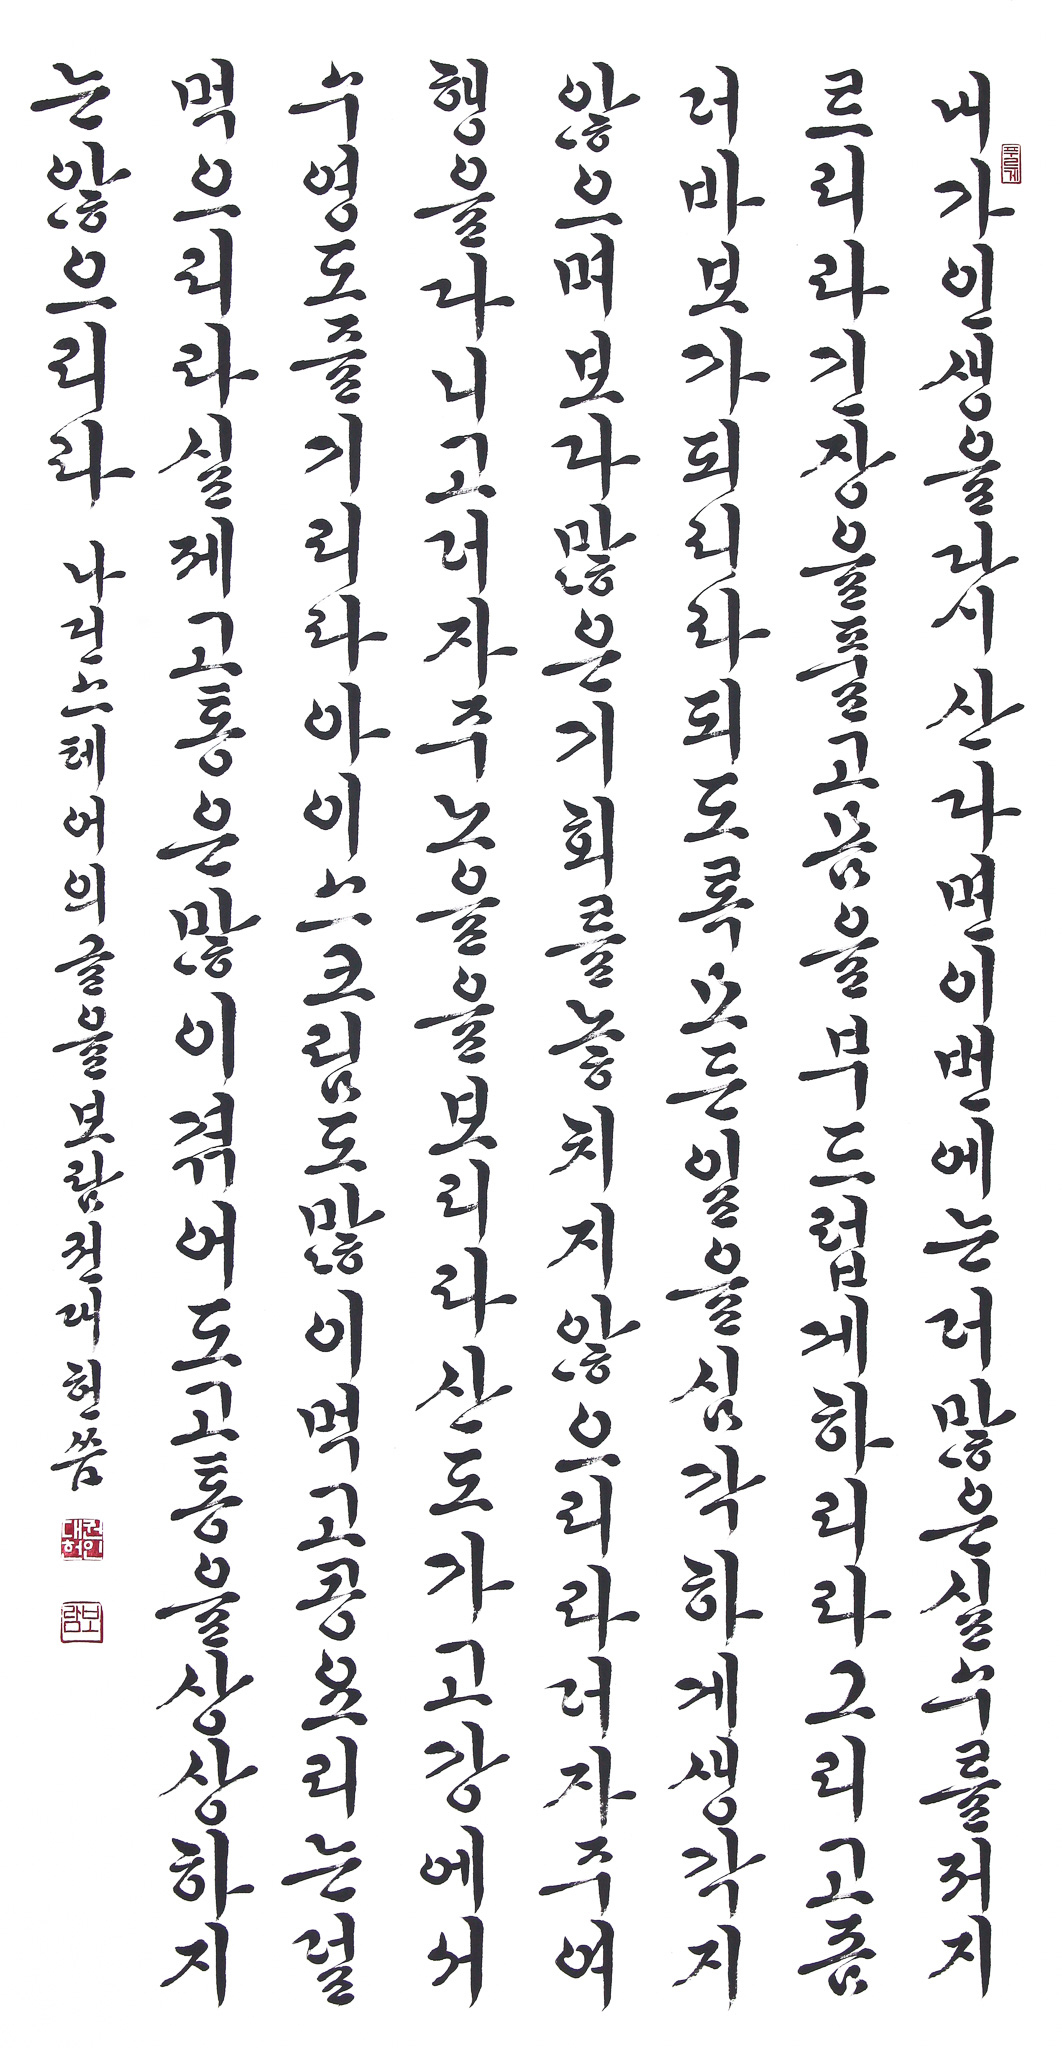 푸르게
내가인생을다시산다면이번에는더많은실수를저지
르리라긴장을풀고몸을부드럽게하리라그리고좀
더바보가되리라되도록모든일을심각하게생각지
않으며보다많은기회를놓치지않으리라더자주여
행을다니고더자주노을을보리라산도가고강에서
수영도즐기리라아이스크림도많이먹고콩요리는덜
먹으리라실제고통은많이겪어도고통을상상하지
는않으리라 나딘스테어의글을보람전대현씀
보람